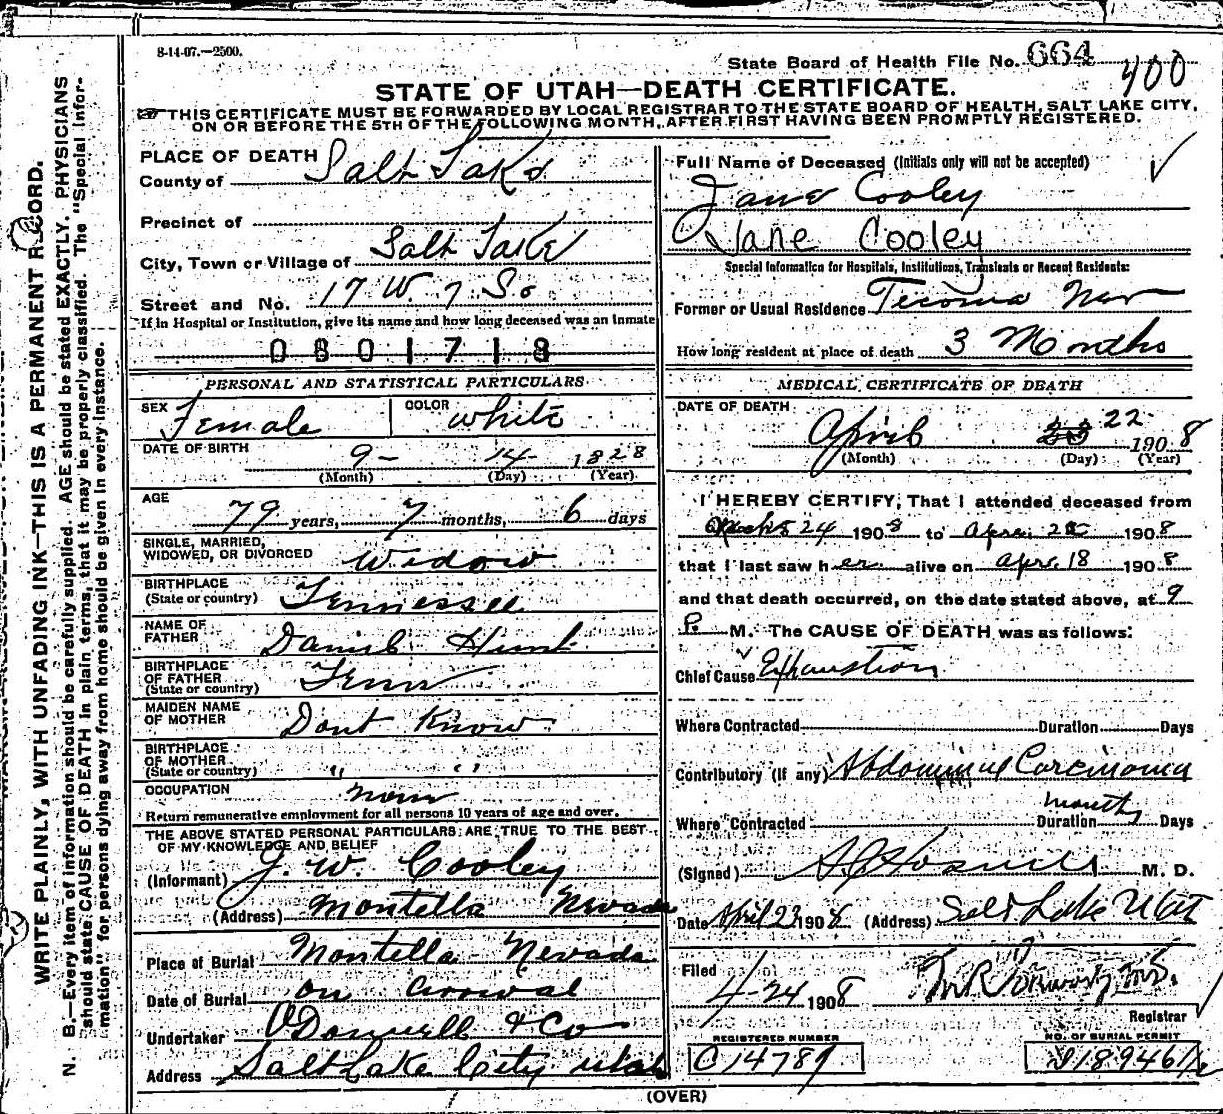 8-14-07.—2500.
State Board of Health File No. 664
400
STATE OF UTAH—DEATH CERTIFICATE.
THIS CERTIFICATE MUST BE FORWARDED BY LOCAL REGISTRAR TO THE STATE BOARD OF HEALTH, SALT LAKE CITY,
ON OR BEFORE THE 5TH OF THE FOLLOWING MONTH, AFTER FIRST HAVING BEEN PROMPTLY REGISTERED.
WRITE PLAINLY, WITH UNFADING INK—THIS IS A PERMANENT RECORD.
N. B.—Every item of information should be carefully supplied. AGE should be stated EXACTLY. PHYSICIANS
should state CAUSE OF DEATH in plain terms, that it may be properly classified. The "Special Infor-
mation" for persons dying away from home should be given in every instance.
PLACE OF DEATH
County of Salt Lake
Precinct of
City, Town or Village of Salt Lake
Street and No. 17 W. 7 So
If in Hospital or Institution, give its name and how long deceased was an inmate
0801718
PERSONAL AND STATISTICAL PARTICULARS
SEX Female COLOR White
DATE OF BIRTH 9 - 14 - 1828
(Month) (Day) (Year)
AGE 79 years, 7 months, 6 days
SINGLE, MARRIED,
WIDOWED, OR DIVORCED Widow
BIRTHPLACE
(State or country) Tennessee
NAME OF
FATHER Daniel Hunt
BIRTHPLACE
OF FATHER
(State or country) Tenn
MAIDEN NAME
OF MOTHER Dont Know
BIRTHPLACE
OF MOTHER
(State or country) " "
OCCUPATION none
Return remunerative employment for all persons 10 years of age and over.
THE ABOVE STATED PERSONAL PARTICULARS ARE TRUE TO THE BEST
OF MY KNOWLEDGE AND BELIEF
(Informant) J. W. Cooley
(Address) Montella Nevada
Place of Burial Montella Nevada
Date of Burial on arrival
Undertaker O'Donnell & Co
Address Salt Lake City Utah
Full Name of Deceased (Initials only will not be accepted)
Jane Cooley
Jane Cooley
Special Information for Hospitals, Institutions, Transients or Recent Residents:
Former or Usual Residence Tecoma Nev
How long resident at place of death 3 Months
MEDICAL CERTIFICATE OF DEATH
DATE OF DEATH
April 22 1908
(Month) (Day) (Year)
I HEREBY CERTIFY, That I attended deceased from
24 1908 to Apr. 1908
that I last saw her alive on Apr. 18 1908
and that death occurred, on the date stated above, at 9
P. M. The CAUSE OF DEATH was as follows:
Chief Cause Exhaustion
Where Contracted Duration Days
Contributory (if any) Abdominal Carcinoma
Where Contracted Duration months Days
(Signed) M. D.
Date April 23 1908 (Address) Salt Lake Utah
Filed
4-24 1908
Registrar
REGISTERED NUMBER
C14789
NO. OF BURIAL PERMIT
(OVER)